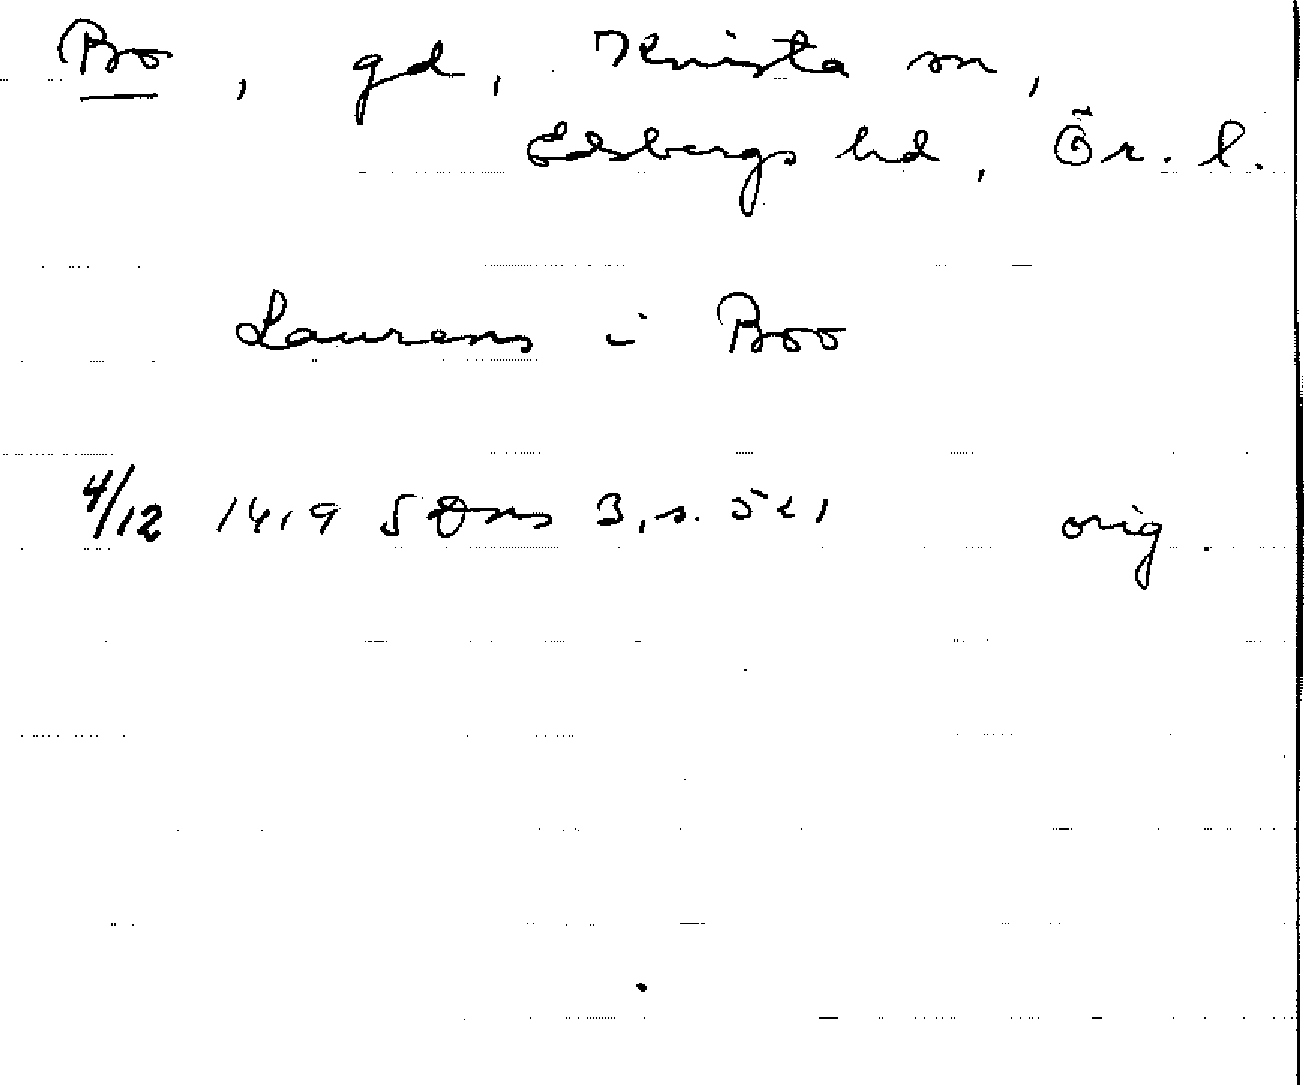 Bo, gd, Knista sn,
Edsbergs hd, Ör. l.
Laurens i Boo
4/12 1419 SDns 3, s. 521 orig.